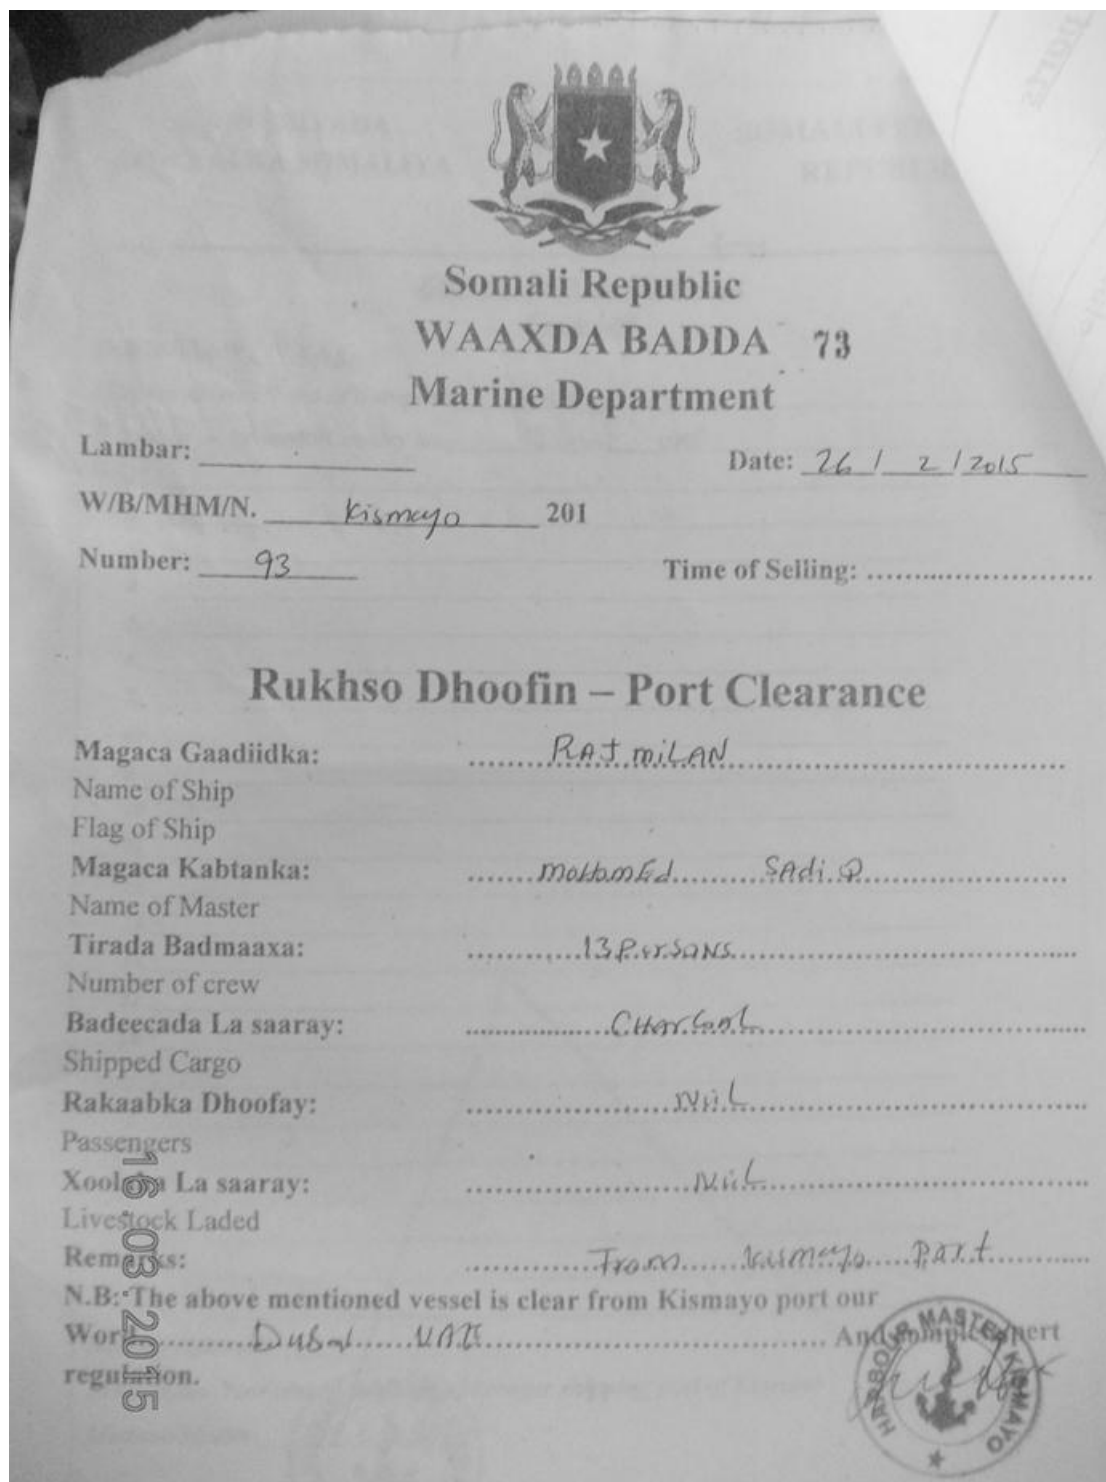 Somali Republic
WAAXDA BADDA 73
Marine Department
Lambar: Date: 26 / 2 / 2015
W/B/MHM/N. Kismayo 201
Number: 93 Time of Selling:
Rukhso Dhoofin – Port Clearance
Magaca Gaadiidka: RAJ miLAN
Name of Ship
Flag of Ship
Magaca Kabtanka: mohamEd SAdiQ
Name of Master
Tirada Badmaaxa: 13 PersoNs
Number of crew
Badeecada La saaray: CHArCoaL
Shipped Cargo
Rakaabka Dhoofay: NiiL
Passengers
La saaray: NiiL
Livestock Laded
Remarks: From Kismayo Port
N.B: The above mentioned vessel is clear from Kismayo port our
Dubai UAE And
regulation.
16.03.2015
HARBOUR MASTER KISMAYO